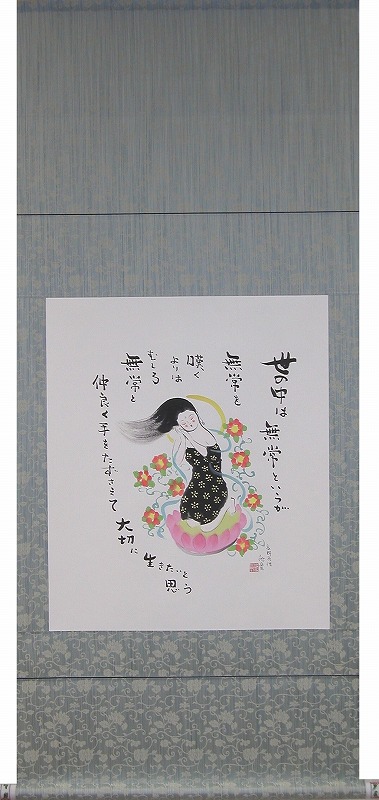 世の中は
無常というが
無常を
嘆く
よりは
むしろ
無常と
仲良く手をたずさえて
大切に
生きたいと
思う